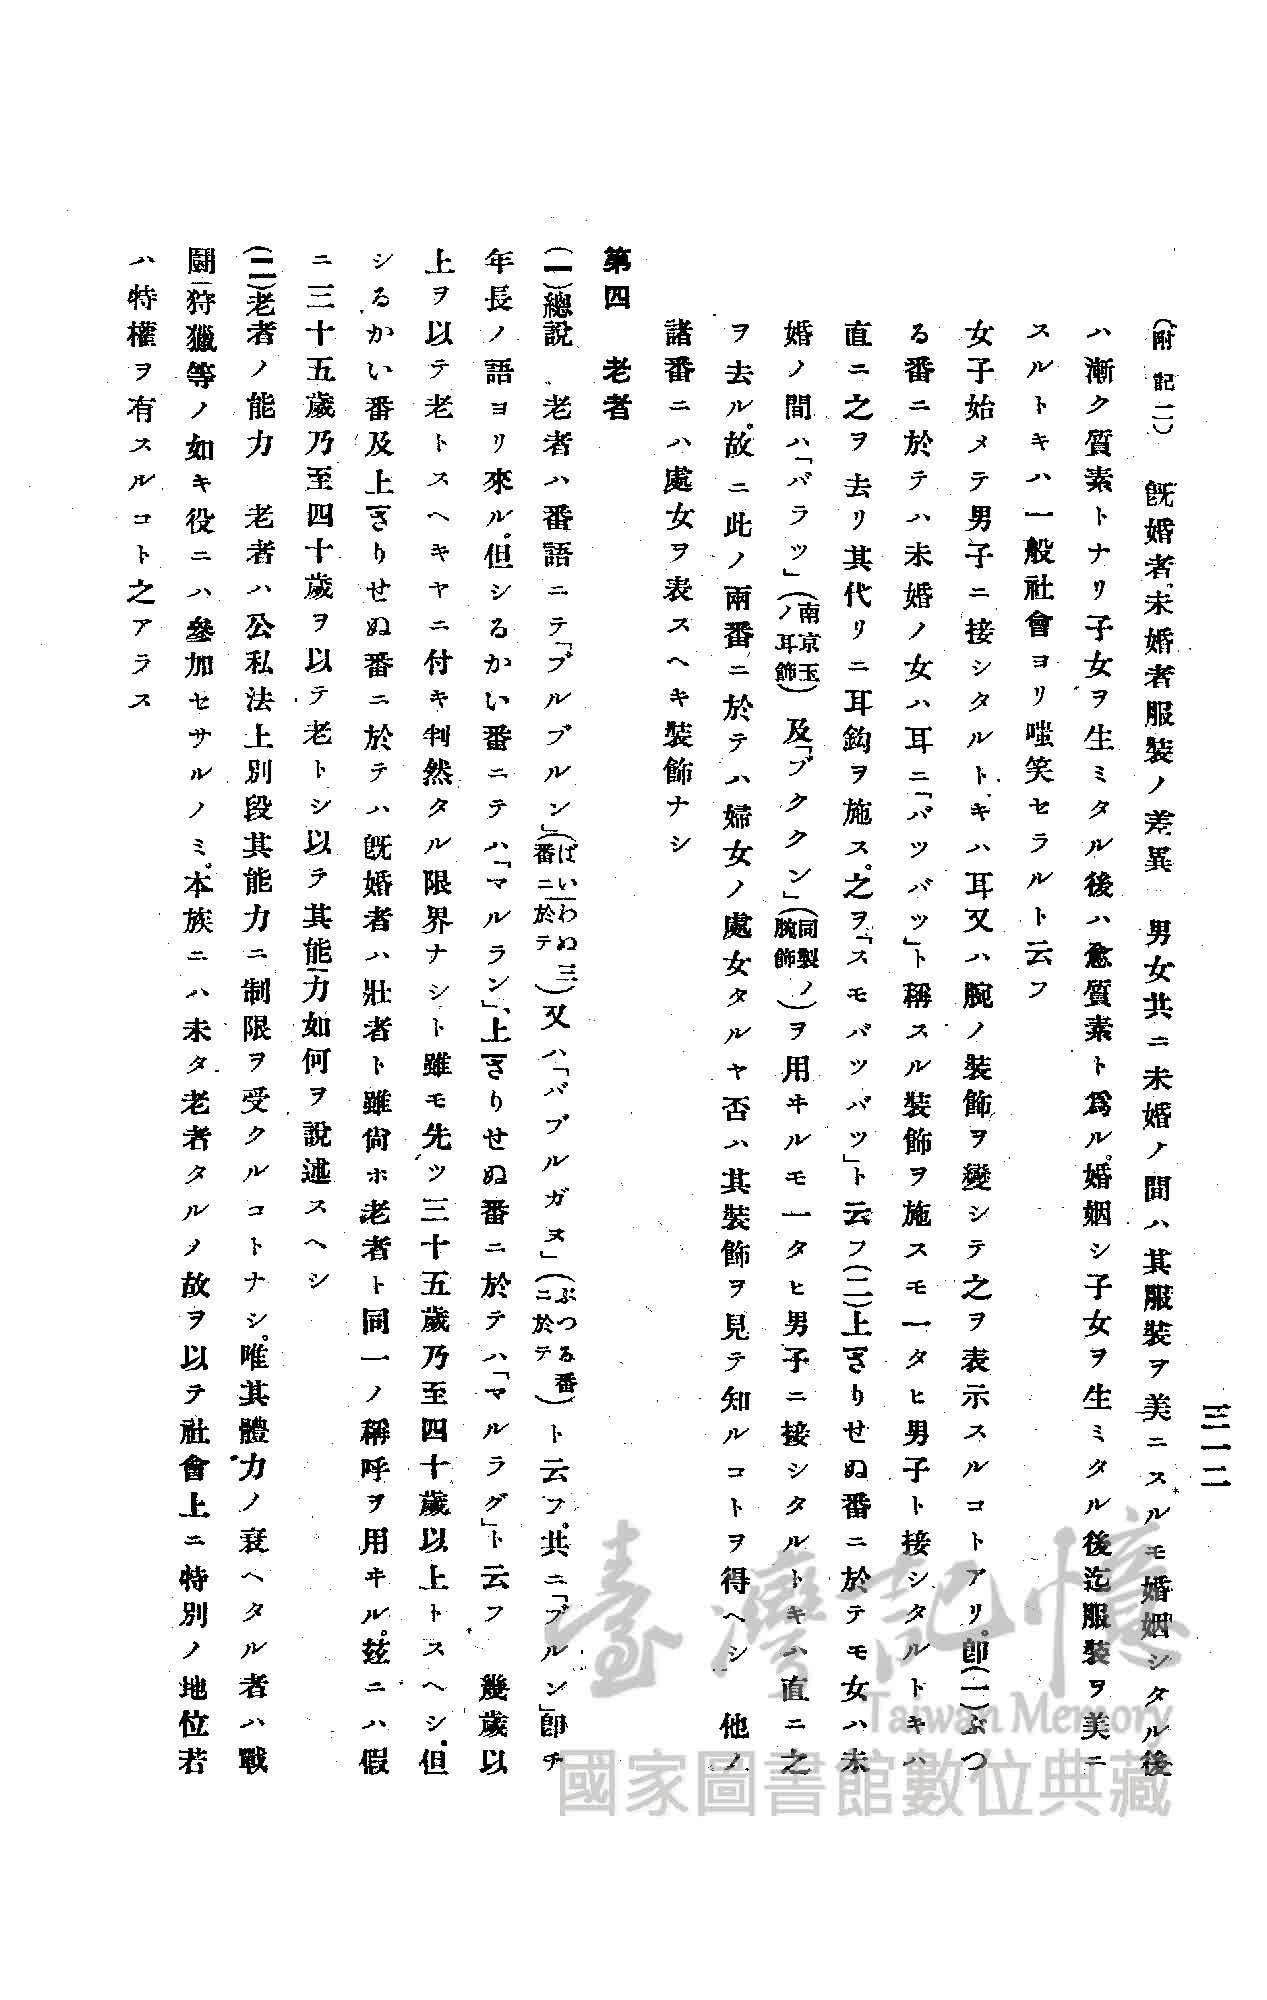 三一二
(附記二) 旣婚者、未婚者服裝ノ差異 男女共ニ未婚ノ間ハ其服裝ヲ美ニスルモ婚姻シタル後
ハ漸ク質素トナリ子女ヲ生ミタル後ハ愈質素ト爲ル。婚姻シ子女ヲ生ミタル後迄服裝ヲ美ニ
スルトキハ一般社會ヨリ嗤笑セラルト云フ
女子始メテ男子ニ接シタルトキハ耳又ハ腕ノ裝飾ヲ變シテ之ヲ表示スルコトアリ。卽(一)ぶつ
る番ニ於テハ未婚ノ女ハ耳ニ「バツバツ」ト稱スル裝飾ヲ施スモ一タヒ男子ト接シタルトキハ
直ニ之ヲ去リ其代リニ耳鈎ヲ施ス。之ヲ「スモバツバツ」ト云フ(二)上ざりせぬ番ニ於テモ女ハ未
婚ノ間ハ「バラツ」(南京玉ノ耳飾)及「ブククン」(同製ノ腕飾)ヲ用ヰルモ一タヒ男子ニ接シタルトキハ直ニ之
ヲ去ル。故ニ此ノ兩番ニ於テハ婦女ノ處女タルヤ否ハ其裝飾ヲ見テ知ルコトヲ得ヘシ 他ノ
諸番ニハ處女ヲ表スヘキ裝飾ナシ
第四 老者
(一)總說 老者ハ番語ニテ「ブルブルン」(ばいわぬ三番ニ於テ)又ハ「バブルガヌ」(ぶつる番ニ於テ)ト云フ。共ニ「ブルン」卽チ
年長ノ語ヨリ來ル。但シるかい番ニテハ「マルラン」、上ざりせぬ番ニ於テハ「マルラグ」ト云フ 幾歲以
上ヲ以テ老トスヘキヤニ付キ判然タル限界ナシト雖モ先ツ三十五歲乃至四十歲以上トスヘシ。但
シるかい番及上ざりせぬ番ニ於テハ旣婚者ハ壯者ト雖尙ホ老者ト同一ノ稱呼ヲ用ヰル。玆ニハ假
ニ三十五歲乃至四十歲ヲ以テ老トシ以テ其能力如何ヲ說述スヘシ
(二)老者ノ能力 老者ハ公私法上別段其能力ニ制限ヲ受クルコトナシ。唯其體力ノ衰ヘタル者ハ戰
鬪、狩獵等ノ如キ役ニハ參加セサルノミ。本族ニハ未タ老者タルノ故ヲ以テ社會上ニ特別ノ地位若
ハ特權ヲ有スルコト之アラス
臺灣記憶
Taiwan Memory
國家圖書館數位典藏